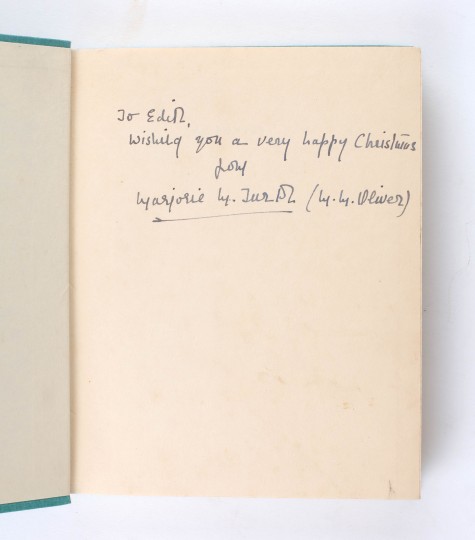 To Edith,
Wishing you a very happy Christmas
from
Marjorie M. (M. M. Oliver)